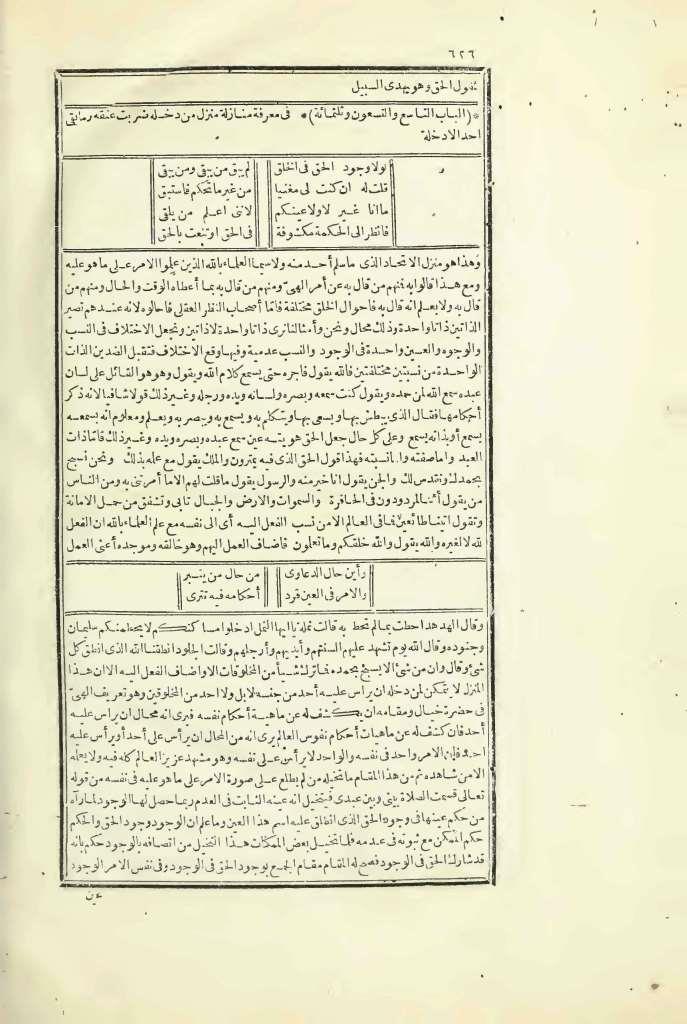 ٦٢٦
يقول الحق وهو يهدى السبيل
*(الباب التاسع والتسعون وثلثمائة)* فى معرفة منازلة منزل من دخله ضربت عنقه وما بقى
احد الا دخله
لولا وجود الحق فى الخلق لم يبق من يبقى ومن يبقى
قلت له ان كنت لى مغنيا من غير ما تحكم فاستبق
ما انا غير لا ولا عينكم لاننى اعلم من يلقى
فانظر الى الحكمة مكشوفة فى الحق او تنعت بالحق
وهذا هو منزل الاتحاد الذى ما سلم أحد منه ولا سيما العلماء بالله الذين علموا الامر على ما هو عليه
ومع هذا قالوا به فمنهم من قال به عن أمر الهىّ ومنهم من قال به بما أعطاه الوقت والحال ومنهم من
قال به ولا يعلم انه قال به فاحوال الخلق مختلفة فامّا أصحاب النظر العقلى فاحالوه لانه عندهم تصير
الذاتين ذاتا واحدة وذلك محال ونحن وأمثالنا نرى ذاتا واحدة لا ذاتين ونجعل الاختلاف فى النسب
والوجوه والعين واحدة فى الوجود والنسب عدمية وفيها وقع الاختلاف فتقبل الضدين الذات
الواحدة من نسبتين مختلفتين فالله يقول فاجره حتى يسمع كلام الله ويقول وهو القائل على لسان
عبده سمع الله لمن حمده ويقول كنت سمعه وبصره ولسانه ويده ورجله وغير ذلك قولا شافيا لانه ذكر
أحكامها فقال الذى يبطش بها ويسعى بها ويتكلم به ويسمع به ويبصر به ويعلم ومعلوم انه يسمعه
يسمع أو بذاته يسمع وعلى كل حال جعل الحق هويته عين سمع عبده وبصره ويده وغير ذلك فامّا ذات
العبد واما صفته واما نسبته فهذا قول الحق الذى فيه يمترون والملك يقول مع علمه بذلك ونحن نسبح
بحمدك ونقدس لك والجن يقول انا خير منه والرسول يقول ما قلت لهم الا ما أمرتنى به ومن الناس
من يقول أئنا لمردودون فى الحافرة والسموات والارض والجبال تأبى وتشفق من حمل الامانة
وتقول اتينا طائعين فما فى العالم الا من نسب الفعل اليه أى الى نفسه مع علم العلماء بالله ان الفعل
لله لا لغيره والله يقول والله خلقكم وما تعملون فاضاف العمل اليهم وهو خالقه وموجده أعنى العمل
وأين حال الدعاوى من حال من يتبر
والامر فى العين فرد أحكامه فيه تترى
وقال الهدهد احطت بما لم تحط به قالت نملة يا ايها النمل ادخلوا مساكنكم لا يحطمنكم سليمان
وجنوده وقال الله يوم تشهد عليهم السنتهم وأيديهم وأرجلهم وقالت الجلود انطقنا الله الذى انطق كل
شئ وقال وان من شئ الا يسبح بحمده فما ترك شيأ من المخلوقات الا واضاف الفعل اليه الا ان هذا
المنزل لا يتمكن لمن دخله ان يرأس عليه أحد من جنسه لا بل ولا احد من المخلوقين وهو تعريف الهىّ
فى حضرة خيال ومقامه ان يكشف له عن ماهية أحكام نفسه فيرى انه محال ان يرأس عليه
أحد فان كشف له عن ماهيات أحكام نفوس العالم يرى انه من المحال ان يرأس على أحد أو يرأس عليه
احد فان الامر واحد فى نفسه والواحد لا يرأس على نفسه وهو مشهد عزيز العالم كله فيه ولا يعلمه
الا من شاهده ثم من هذا المقام ما تخيله من لم يطلع على صورة الامر على ما هو عليه فى نفسه من قوله
تعالى قسمت الصلاة بينى وبين عبدى فيتخيل انه عينه الثابت فى العدم ربما حصل لها الوجود لما رآه
من حكم عينها فى وجود الحق الذى انطلق عليه اسم هذا العين وما علم ان الوجود وجود الحق والحكم
حكم الممكن مع ثبوته فى عدمه فلما تخيل بعض الممكنات هذا التخيل من اتصافه بالوجود حكم بانه
قد شارك الحق فى الوجود فصح له المقام مقام الجمع بوجود الحق فى الوجود وفى نفس الامر الوجود
عين